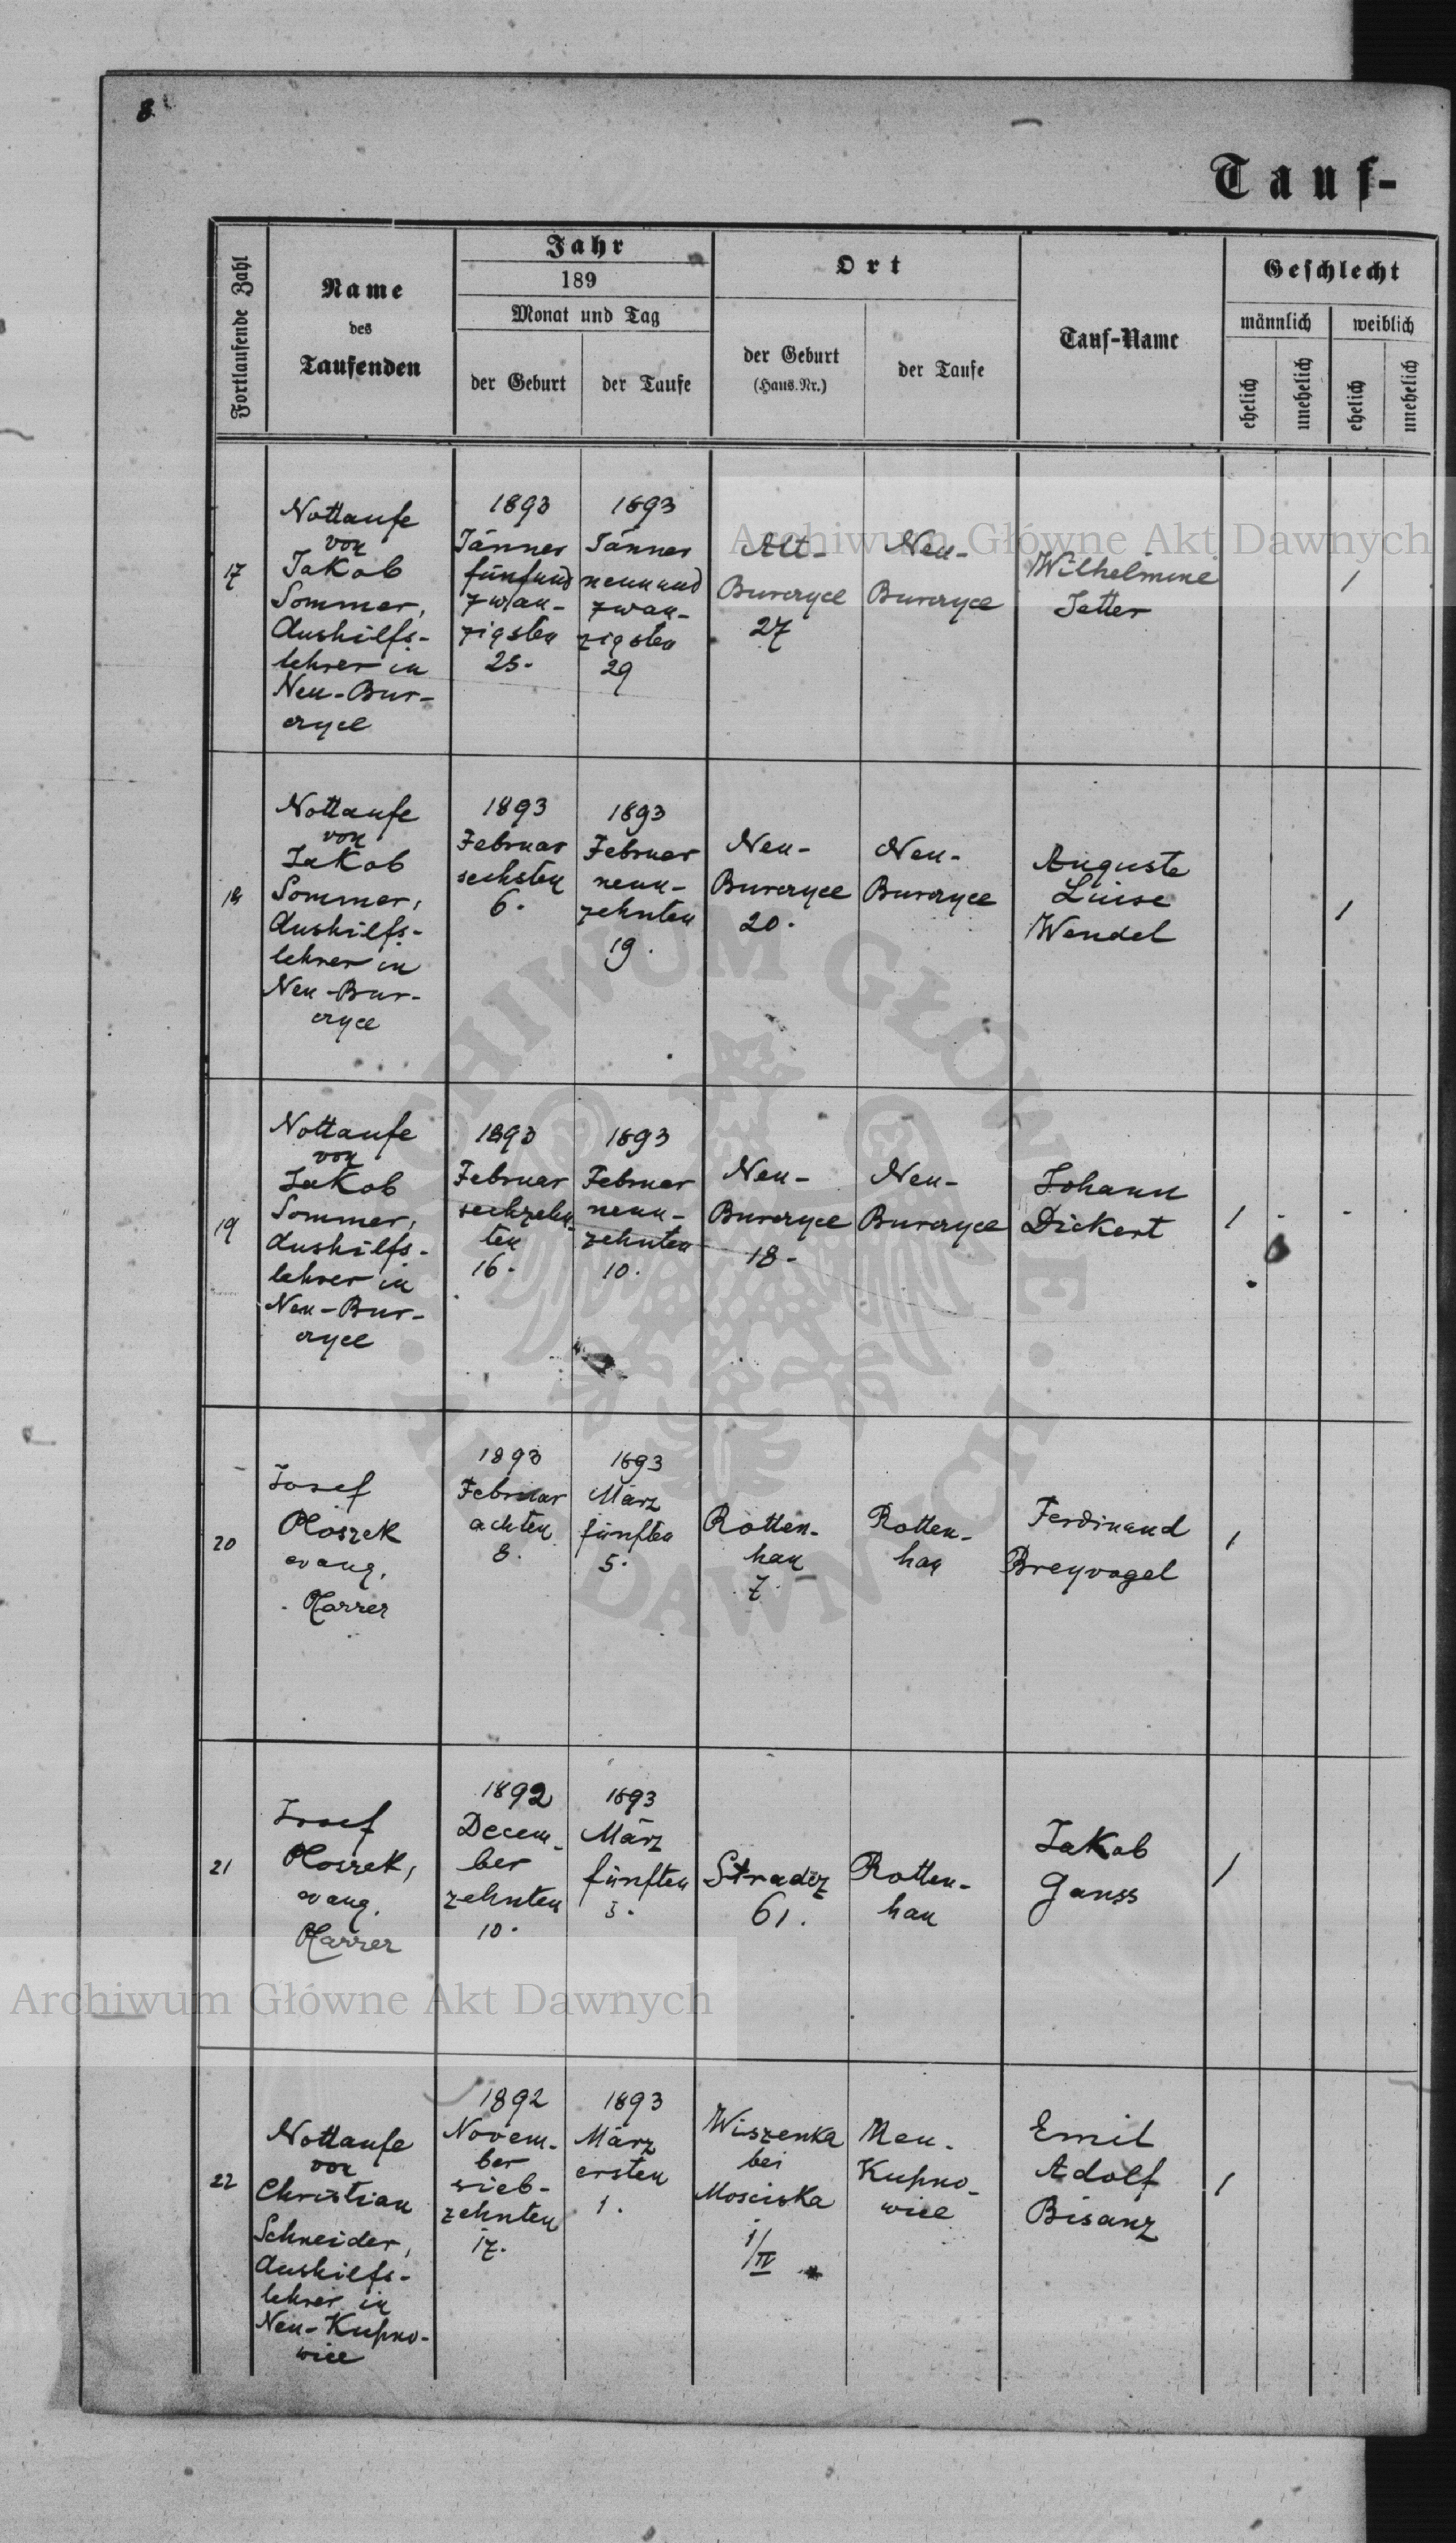 8
Tauf-
Fortlaufende Zahl
Name
des
Taufenden
Jahr
189
Monat und Tag
der Geburt
der Taufe
Ort
der Geburt
(Haus.Nr.)
der Taufe
Tauf-Name
Geschlecht
männlich
weiblich
ehelich
unehelich
ehelich
unehelich
17
Nottaufe
von
Jakob
Sommer,
Aushilfs-
lehrer in
Neu-Bur-
czyce
1893
Jänner
fünfund
zwan-
zigsten
25.
1893
Jänner
neunund
zwan-
zigsten
29
Alt-
Burczyce
27
Neu-
Burczyce
Wilhelmine
Jetter
1
18
Nottaufe
von
Jakob
Sommer,
Aushilfs-
lehrer in
Neu-Bur-
czyce
1893
Februar
sechsten
6.
1893
Februar
neun-
zehnten
19.
Neu-
Burczyce
20.
Neu-
Burczyce
Auguste
Luise
Wendel
1
19
Nottaufe
von
Jakob
Sommer,
Aushilfs-
lehrer in
Neu-Bur-
czyce
1893
Februar
sechzehn-
ten
16.
1893
Februar
neun-
zehnten
10.
Neu-
Burczyce
18-
Neu-
Burczyce
Johann
Dickert
1 - -
20
Josef
Ploszek
evang.
Pfarrer
1893
Februar
achten
8.
1893
März
fünften
5.
Rotten-
han
7.
Rotten-
han
Ferdinand
Breyvogel
1
21
Josef
Ploszek,
evang.
Pfarrer
1892
Decem-
ber
zehnten
10.
1893
März
fünften
5.
Stradcz
61.
Rotten-
han
Jakob
Ganss
1
22
Nottaufe
von
Christian
Schneider,
Aushilfs-
lehrer in
Neu-Kupno-
wice
1892
Novem-
ber
sieb-
zehnten
17.
1893
März
ersten
1.
Wiszenka
bei
Mosciska
1/II
Neu-
Kupno-
wice
Emil
Adolf
Bisanz
1
Archiwum Główne Akt Dawnych
Archiwum Główne Akt Dawnych
ARCHIWUM GŁÓWNE AKT DAWNYCH